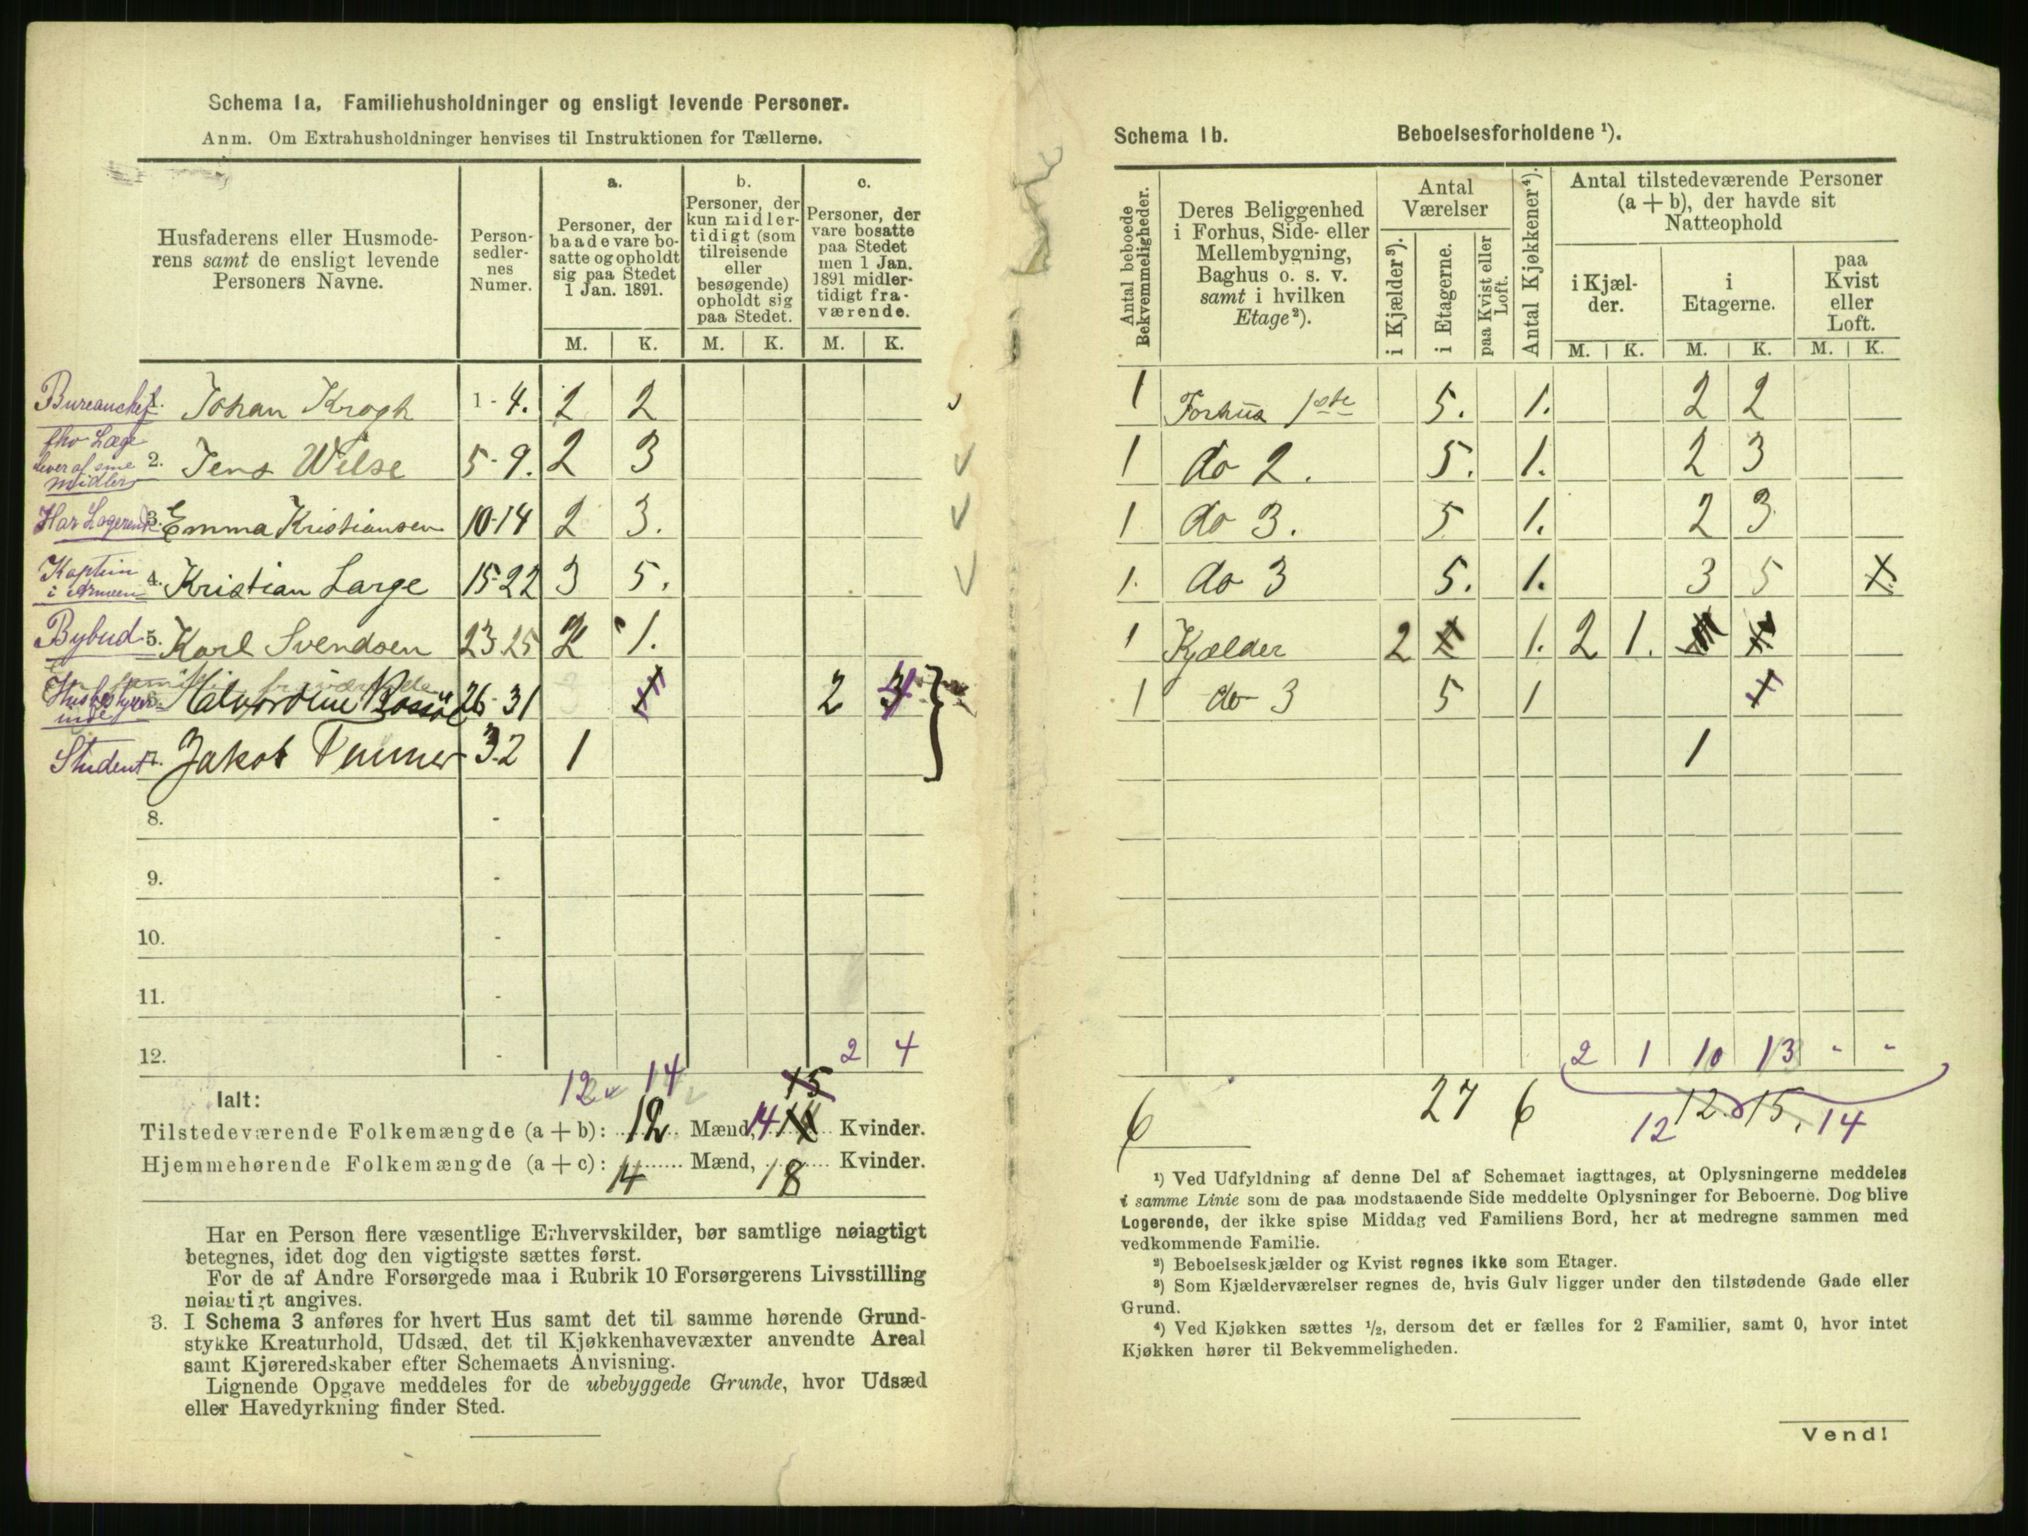 Schema 1a. Familiehusholdninger og ensligt levende Personer.
Anm. Om Extrahusholdninger henvises til Instruktionen for Tællerne.
Husfaderens eller Husmode-
rens samt de ensligt levende
Personers Navne.
Person-
sedler-
nes
Numer.
a.
Personer, der
baade vare bo-
satte og opholdt
sig paa Stedet
1 Jan. 1891.
b.
Personer, der
kun midler-
tidigt (som
tilreisende
eller
besøgende)
opholdt sig
paa Stedet.
c.
Personer, der
vare bosatte
paa Stedet
men 1 Jan.
1891 midler-
tidigt fra-
værende.
M. K. M. K. M. K.
Bureauchef 1. Johan Krogh 1-4. 2 2
fhv Læge
lever af sine
midler
2. Jens Wilse 5-9. 2 3
Har Logerende 3. Emma Kristiansen 10-14 2 3.
Kaptein
i Armeen
4. Kristian Large 15-22 3 5.
Bybud 5. Karl Svendsen 23-25 2 1.
Husbestyrer-
inde
26-31 2 4
Student 7. Jakob 32 1
8. -
9. -
10. -
11. -
12. - 2 4
12 14
15
Ialt:
Tilstedeværende Folkemængde (a + b): 12 Mænd, 14 Kvinder.
Hjemmehørende Folkemængde (a + c): 14 Mænd, 18 Kvinder.
Har en Person flere væsentlige Erhvervskilder, bør samtlige nøiagtigt
betegnes, idet dog den vigtigste sættes først.
For de af Andre Forsørgede maa i Rubrik 10 Forsørgerens Livsstilling
nøiagtigt angives.
3. I Schema 3 anføres for hvert Hus samt det til samme hørende Grund-
stykke Kreaturhold, Udsæd, det til Kjøkkenhavevæxter anvendte Areal
samt Kjøreredskaber efter Schemaets Anvisning.
Lignende Opgave meddeles for de ubebyggede Grunde, hvor Udsæd
eller Havedyrkning finder Sted.
Schema 1b. Beboelsesforholdene ¹).
Antal beboede
Bekvemmeligheder.
Deres Beliggenhed
i Forhus, Side- eller
Mellembygning,
Baghus o. s. v.
samt i hvilken
Etage²).
Antal
Værelser
i Kjælder³).
i Etagerne.
paa Kvist eller
Loft.
Antal Kjøkkener⁴).
Antal tilstedeværende Personer
(a + b), der havde sit
Natteophold
i Kjæl-
der.
i
Etagerne.
paa
Kvist
eller
Loft.
M. K. M. K. M. K.
1 Forhus 1ste 5. 1. 2 2
1 do 2. 5. 1. 2 3
1 do 3. 5 1. 2 3
1. do 3 5. 1. 3 5
1 Kjælder 2 1. 2 1.
1 do 3 5 1
1
2 1 10 13 - -
6 27 6 12 15.
12 14
¹) Ved Udfyldning af denne Del af Schemaet iagttages, at Oplysningerne meddeles
i samme Linie som de paa modstaaende Side meddelte Oplysninger for Beboerne. Dog blive
Logerende, der ikke spise Middag ved Familiens Bord, her at medregne sammen med
vedkommende Familie.
²) Beboelseskjælder og Kvist regnes ikke som Etager.
³) Som Kjælderværelser regnes de, hvis Gulv ligger under den tilstødende Gade eller
Grund.
⁴) Ved Kjøkken sættes ¹/₂, dersom det er fælles for 2 Familier, samt 0, hvor intet
Kjøkken hører til Bekvemmeligheden.
Vend!